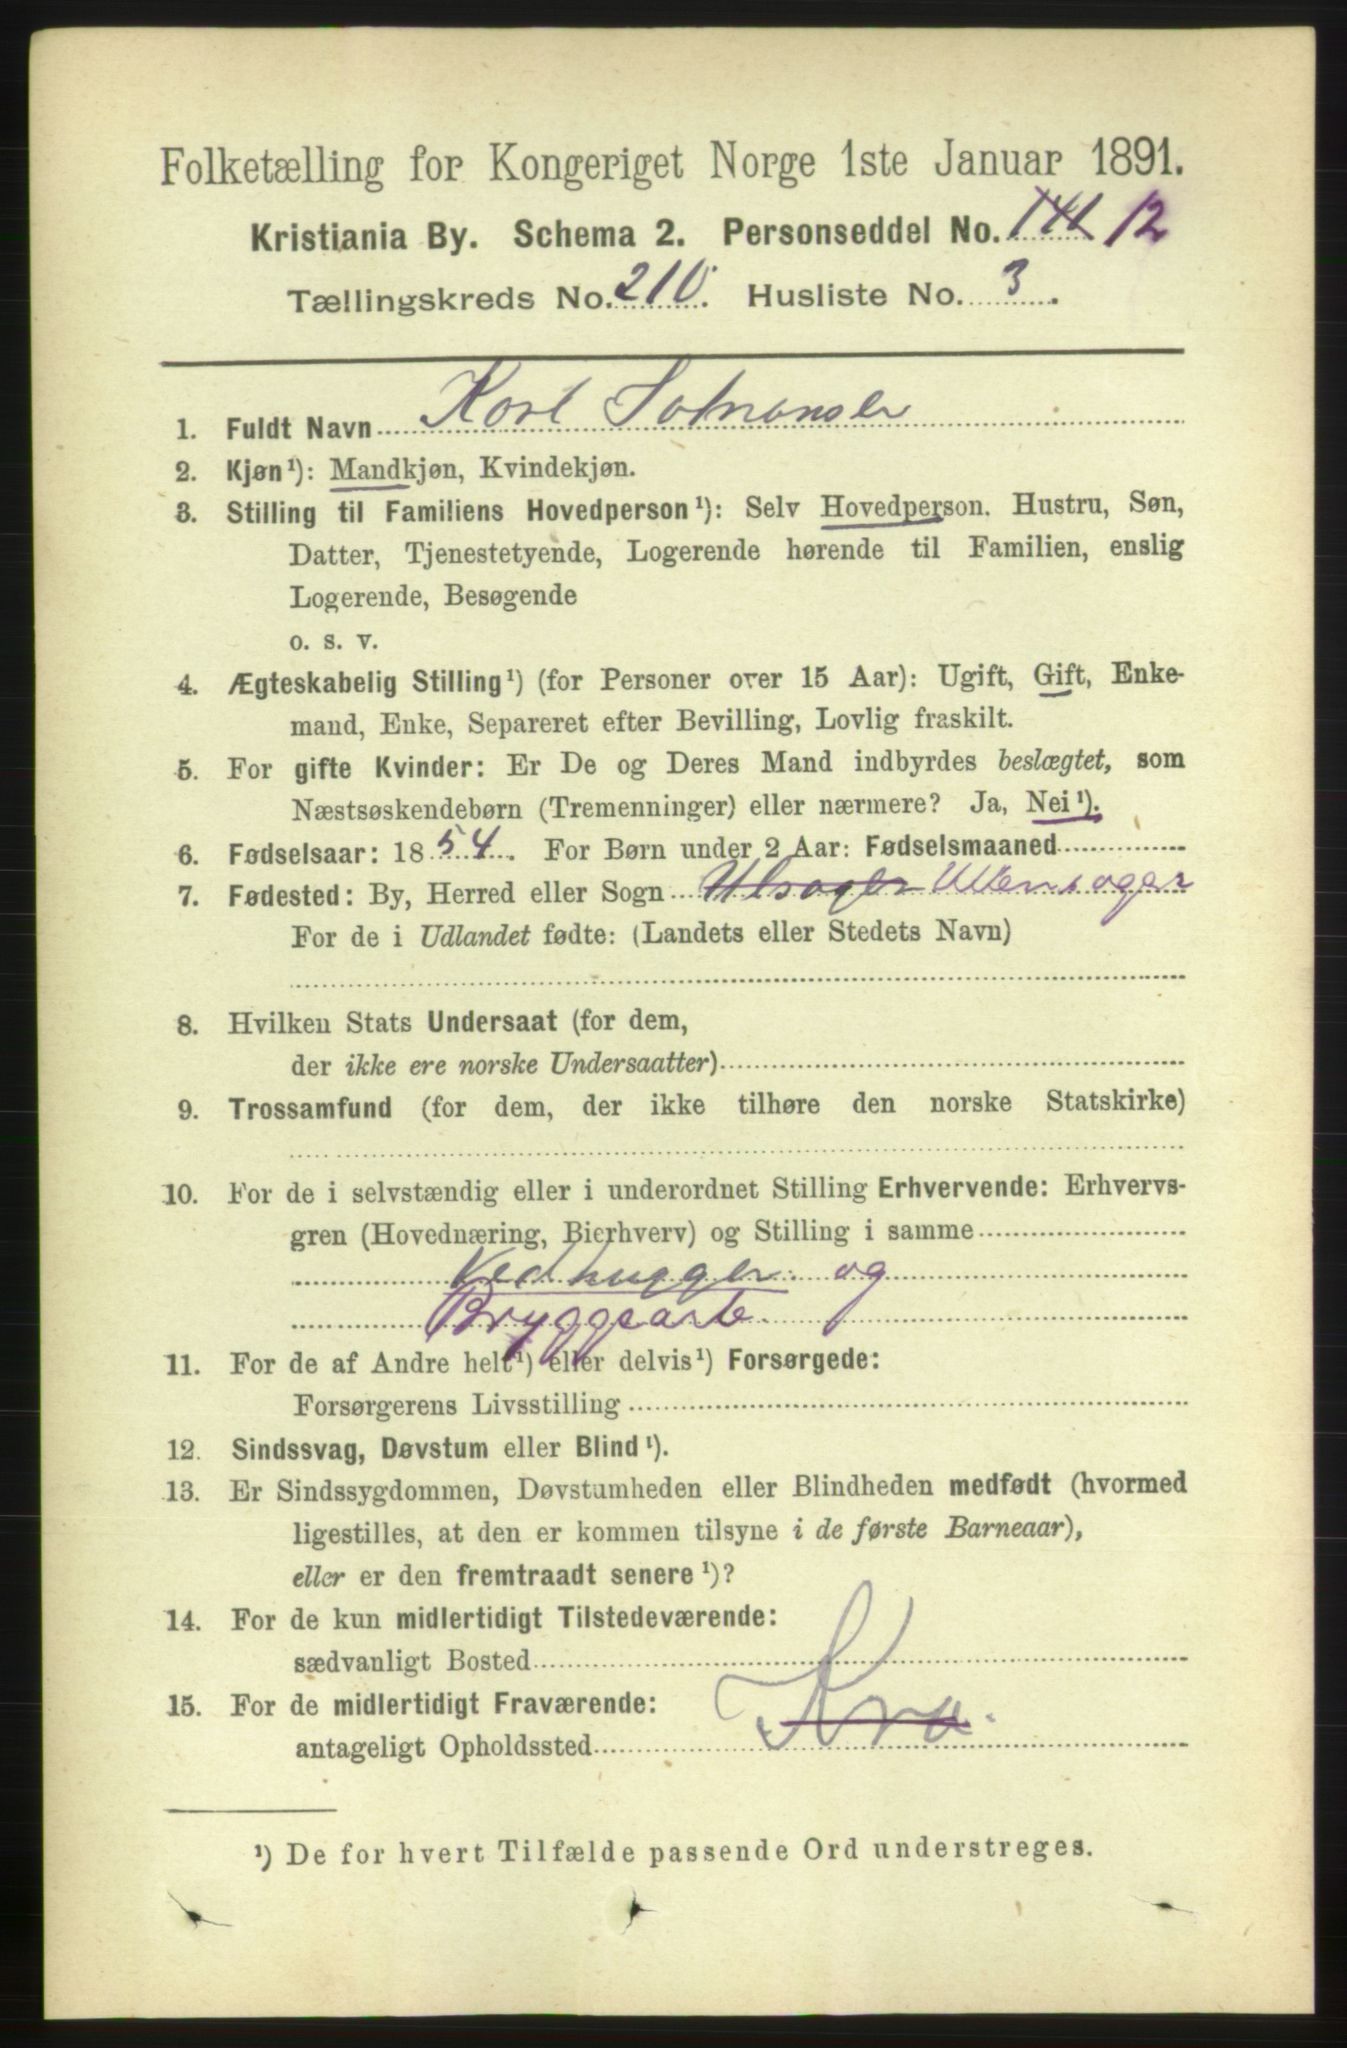 Folketælling for Kongeriget Norge 1ste Januar 1891.
Kristiania By. Schema 2. Personseddel No. 141 12
Tællingskreds No. 210. Husliste No. 3.
1. Fuldt Navn Karl
2. Kjøn¹): Mandkjøn, Kvindekjøn.
3. Stilling til Familiens Hovedperson¹): Selv Hovedperson. Hustru, Søn,
Datter, Tjenestetyende, Logerende hørende til Familien, enslig
Logerende, Besøgende
o. s. v.
4. Ægteskabelig Stilling¹) (for Personer over 15 Aar): Ugift, Gift, Enke-
mand, Enke, Separeret efter Bevilling, Lovlig fraskilt.
5. For gifte Kvinder: Er De og Deres Mand indbyrdes beslægtet, som
Næstsøskendebørn (Tremenninger) eller nærmere? Ja, Nei¹).
6. Fødselsaar: 1854. For Børn under 2 Aar: Fødselsmaaned
7. Fødested: By, Herred eller Sogn Ulsager Ullensager
For de i Udlandet fødte: (Landets eller Stedets Navn)
8. Hvilken Stats Undersaat (for dem,
der ikke ere norske Undersaatter)
9. Trossamfund (for dem, der ikke tilhøre den norske Statskirke)
10. For de i selvstændig eller i underordnet Stilling Erhvervende: Erhvervs-
gren (Hovednæring, Bierhverv) og Stilling i samme
Vedhugger og
Bryggearb.
11. For de af Andre helt¹) eller delvis¹) Forsørgede:
Forsørgerens Livsstilling
12. Sindssvag, Døvstum eller Blind¹).
13. Er Sindssygdommen, Døvstumheden eller Blindheden medfødt (hvormed
ligestilles, at den er kommen tilsyne i de første Barneaar),
eller er den fremtraadt senere¹)?
14. For de kun midlertidigt Tilstedeværende:
sædvanligt Bosted
15. For de midlertidigt Fraværende:
antageligt Opholdssted Kra.
¹) De for hvert Tilfælde passende Ord understreges.